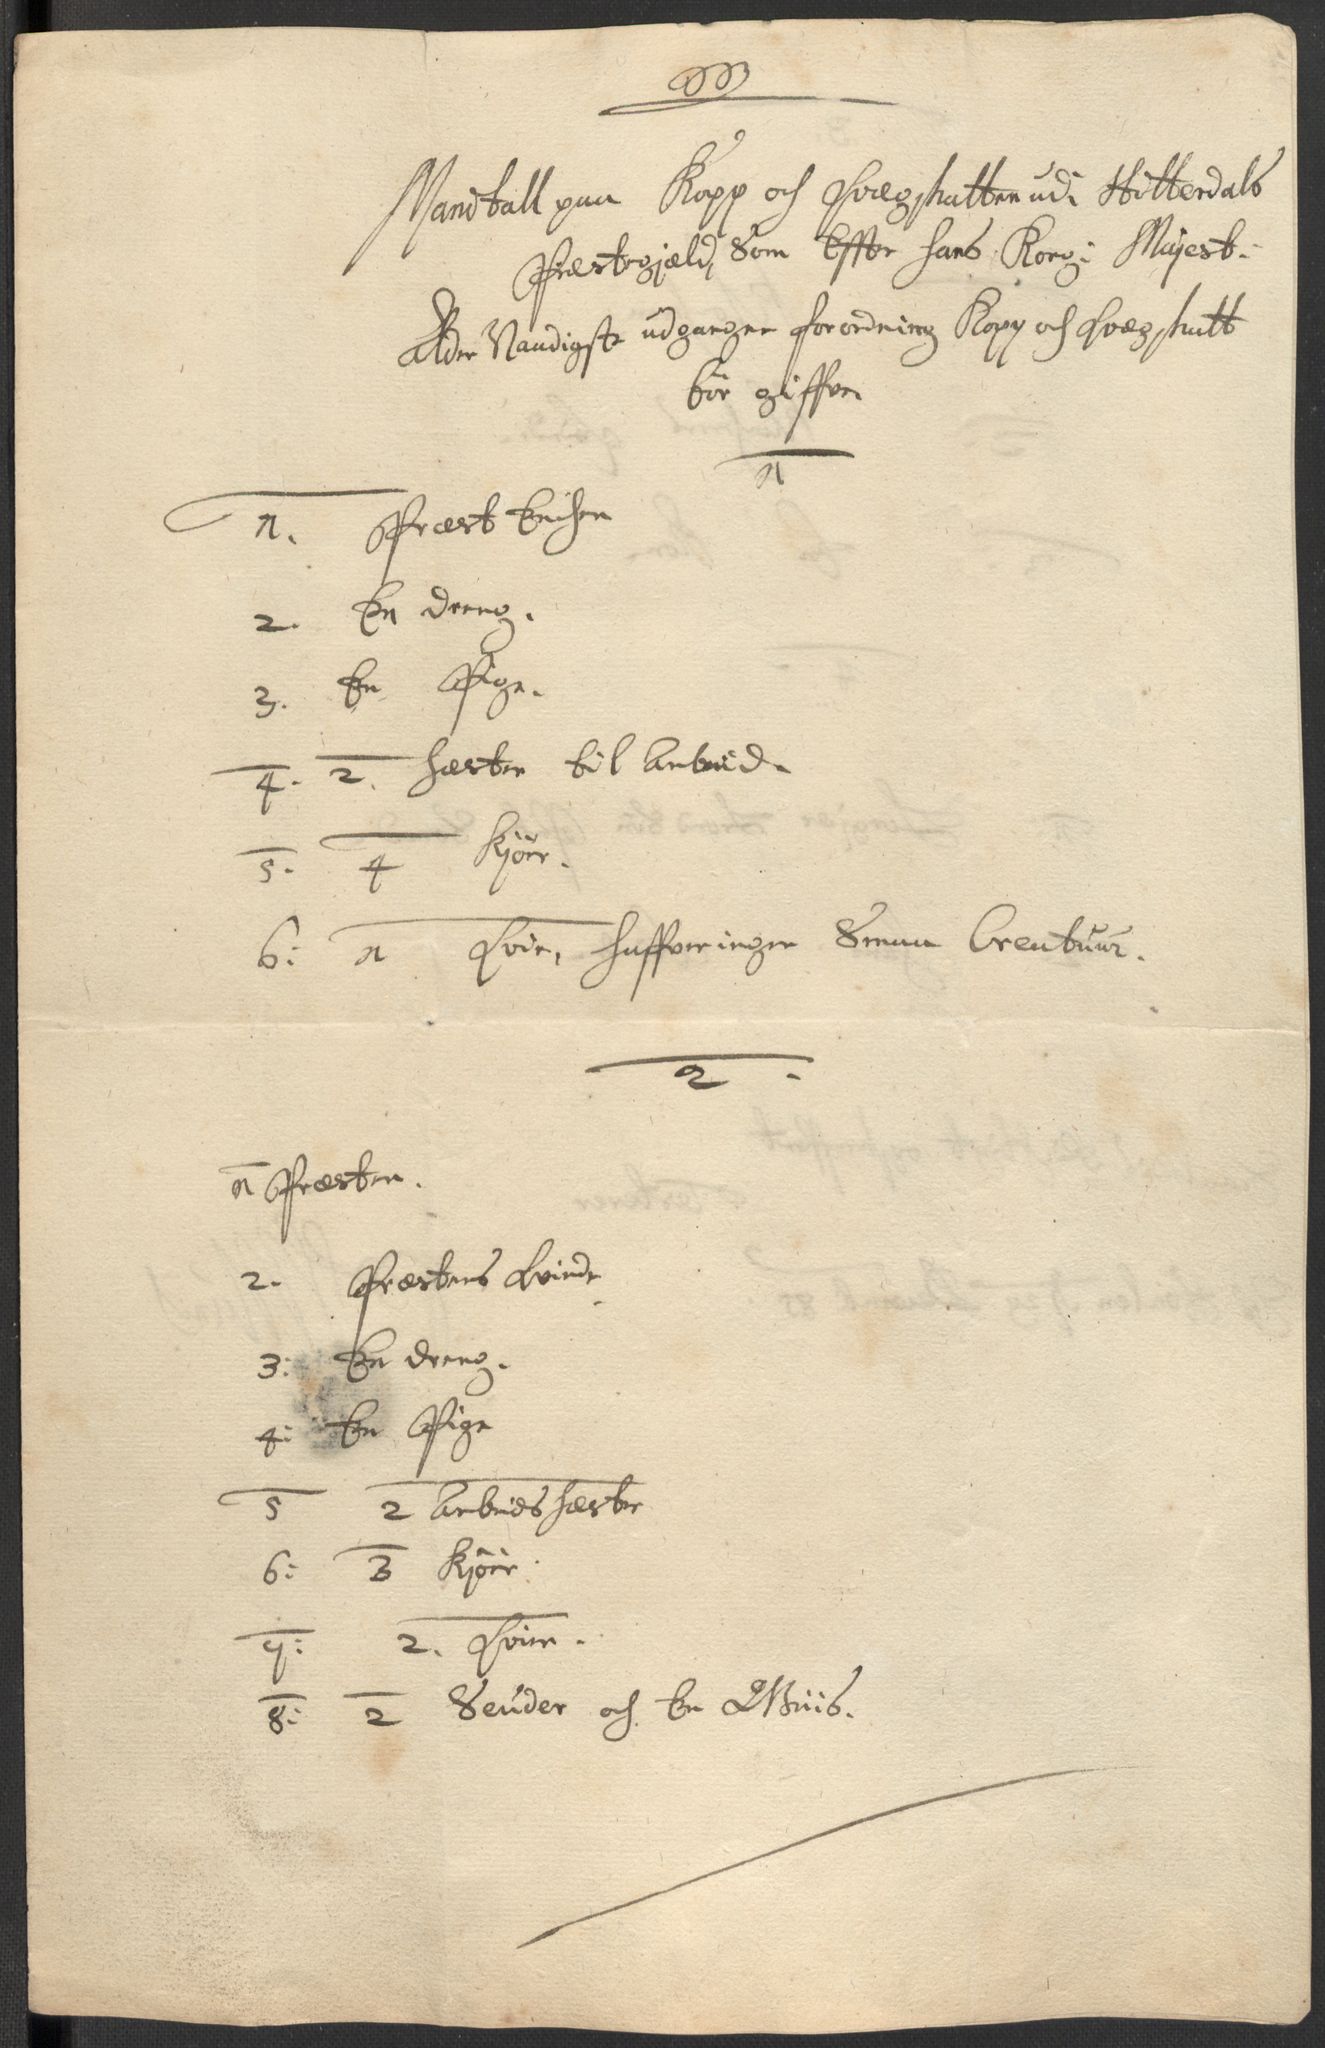 Mandtall paa Kopp och Qvægskatten udi Hitterdals
Præstegjæld, Som Effter hans Kong: Majest:
Alder Naadigste udgangne forordning Kopp och Qvægskatt
bör giffve
1
1. Præst Enchen
2. En dreng.
3. En Pige.
4. 2. hæster til Arbeid.
5. 4 Kjöer.
6: 1 Qvie, Smaa Creatuur.
2.
1 Præsten.
2. Præstens Qvinde
3: En dreng.
4: En Pige
5 2 Arbeids hæster
6: 3 Kjöer.
7: 2. Qvier.
8: 2 Seuder och En